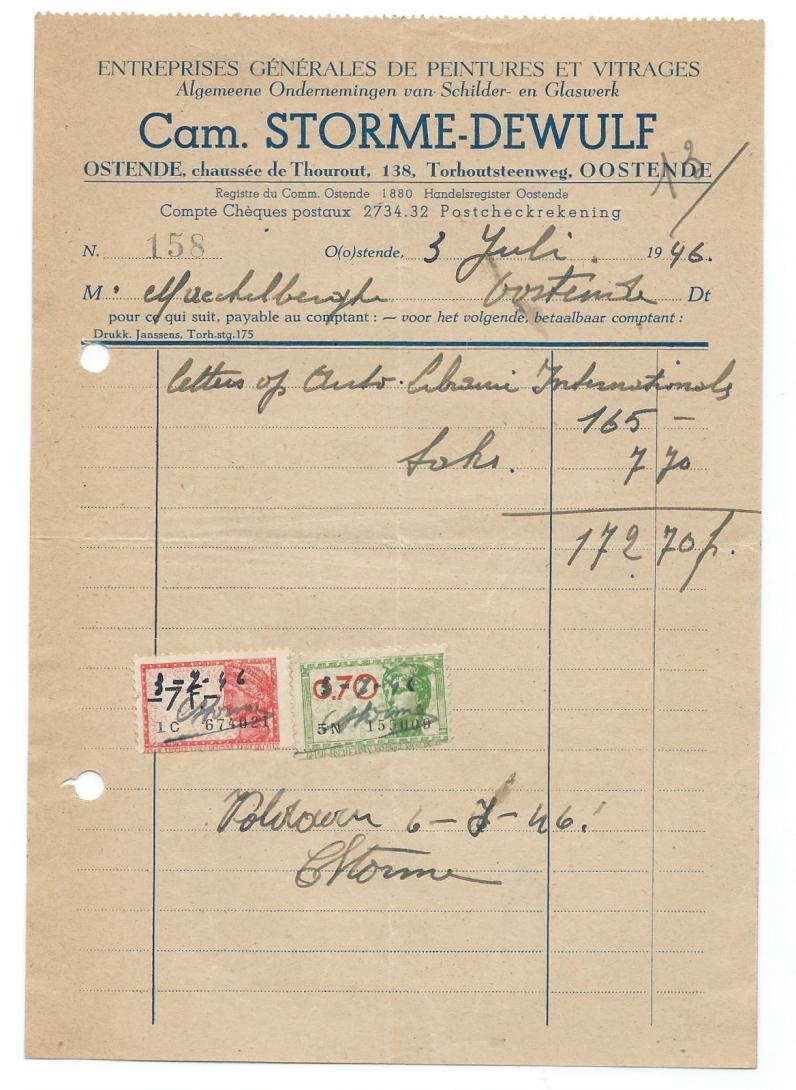 ENTREPRISES GÉNÉRALES DE PEINTURES ET VITRAGES
Algemeene Ondernemingen van Schilder- en Glaswerk
Cam. STORME-DEWULF
OSTENDE, chaussée de Thourout, 138, Torhoutsteenweg, OOSTENDE
13/
Registre du Comm. Ostende 1880 Handelsregister Oostende
Compte Chèques postaux 2734.32 Postcheckrekening
N. 158 O(o)stende, 3 Juli 1946.
M. Maechelberghe Oostende Dt
pour ce qui suit, payable au comptant : — voor het volgende, betaalbaar comptant :
Drukk. Janssens, Torh.stg.175
letters op Auto. Librairie Internationale
165 —
Taks. 7 70
172 70 f.
3-7-46 3-7-46
-7F- 0.70
Storme Storme
1C 674021 5N 155009
Voldaan 6-7-46.
CStorme